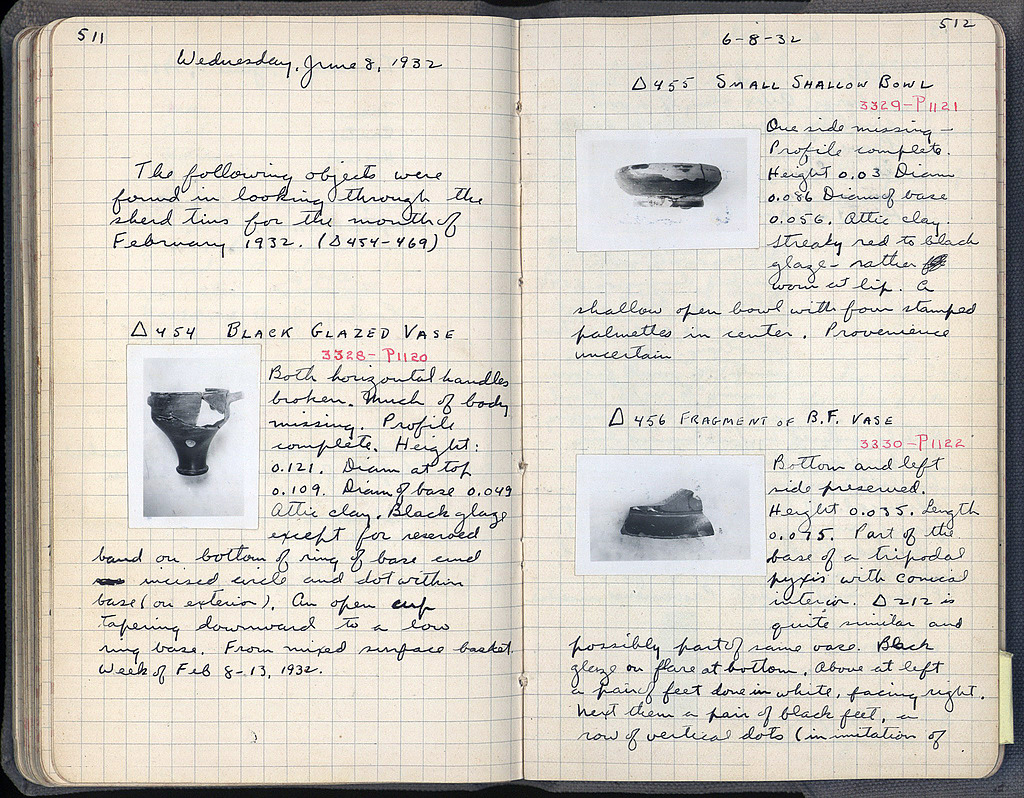 511
Wednesday, June 8, 1932
The following objects were
found in looking through the
sherd tins for the month of
February 1932. (Δ454-469)
Δ454 BLACK GLAZED VASE
3328-P1120
Both horizontal handles
broken. Much of body
missing. Profile
complete. Height:
0.121. Diam at top
0.109. Diam of base 0.049
Attic clay. Black glaze
except for reserved
band on bottom of ring of base and
incised circle and dot within
base (on exterior). An open cup
tapering downward to a low
ring base. From mixed surface basket.
Week of Feb 8-13, 1932.
512
6-8-32
Δ455 SMALL SHALLOW BOWL
3329-P1121
One side missing -
Profile complete.
Height 0.03 Diam
0.086 Diam of base
0.056. Attic clay.
Streaky red to black
glaze - rather
worn at lip. A
shallow open bowl with four stamped
palmettes in center. Provenience
uncertain
Δ456 FRAGMENT OF B.F. VASE
3330-P1122
Bottom and left
side preserved.
Height 0.035. Length
0.075. Part of the
base of a tripodal
pyxis with conical
interior. Δ212 is
quite similar and
possibly part of same vase. Black
glaze on flare at bottom. Above at left
a pair of feet done in white, facing right.
Next them a pair of black feet, a
row of vertical dots (in imitation of